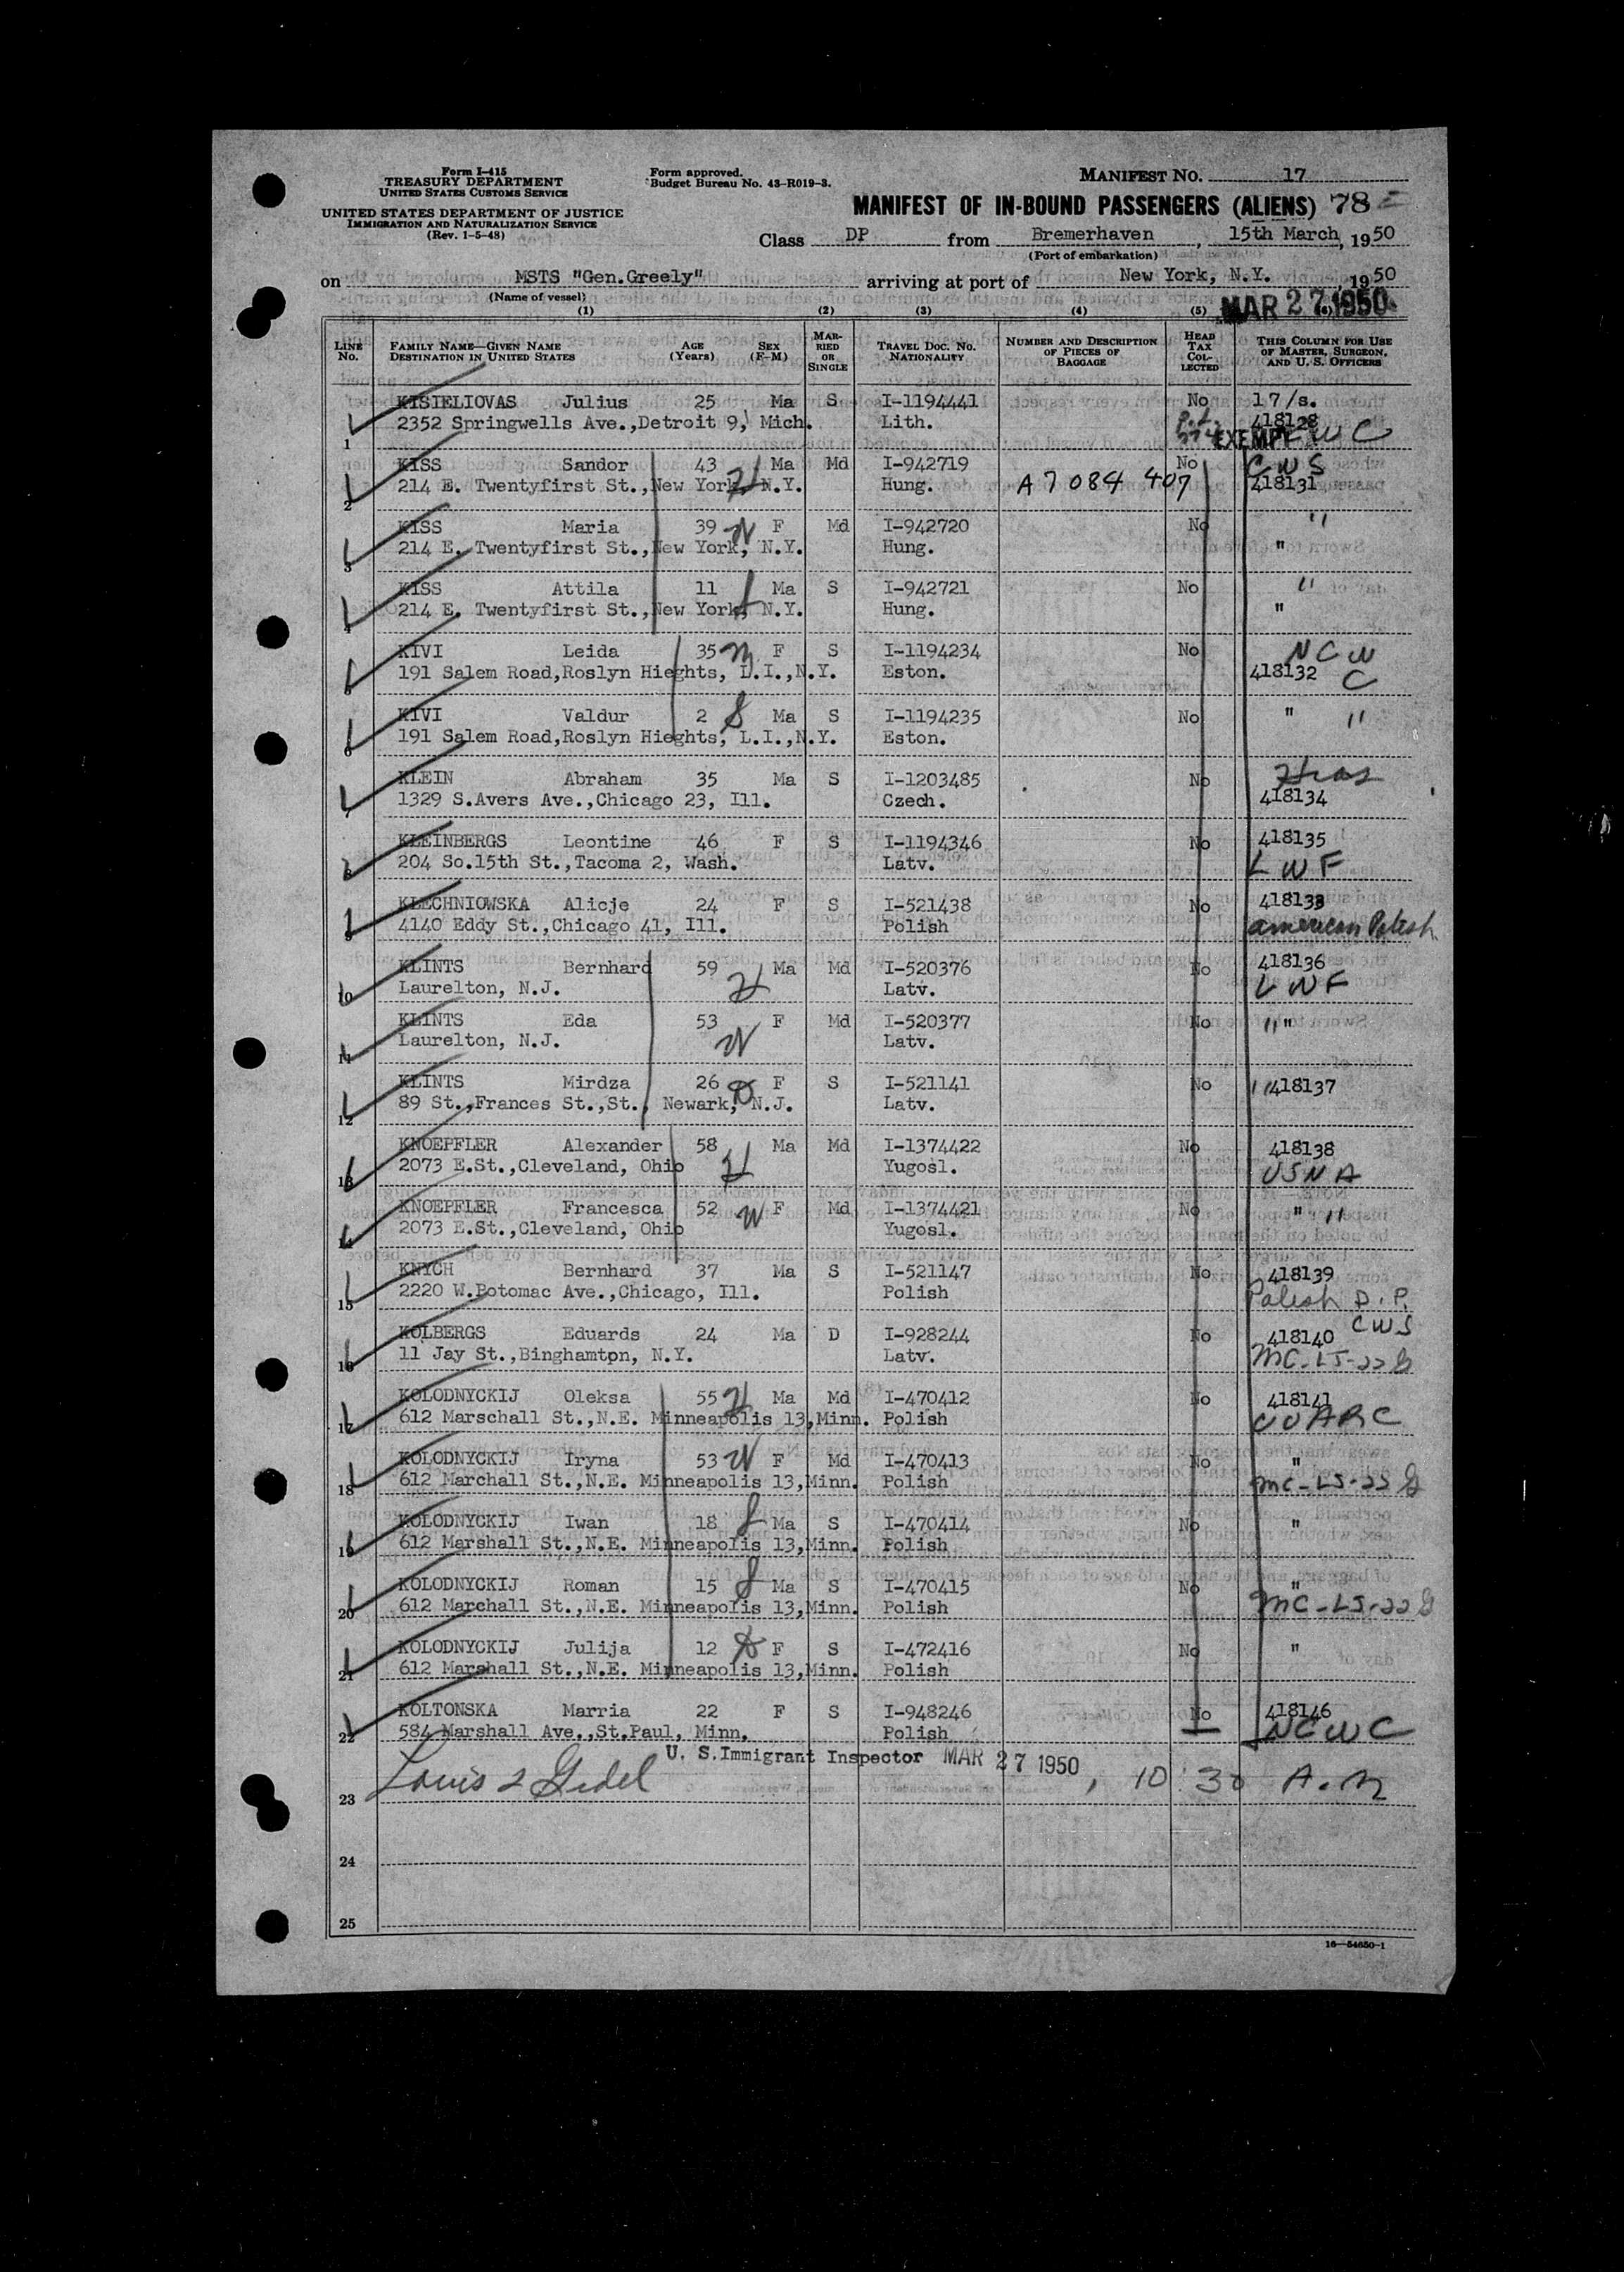 Form I-415
TREASURY DEPARTMENT
UNITED STATES CUSTOMS SERVICE
Form approved.
Budget Bureau No. 43-R019-3.
MANIFEST NO. 17
UNITED STATES DEPARTMENT OF JUSTICE
IMMIGRATION AND NATURALIZATION SERVICE
(Rev. 1-5-48)
MANIFEST OF IN-BOUND PASSENGERS (ALIENS) 78
Class DP from Bremerhaven, 15th March, 1950
(Port of embarkation)
on MSTS "Gen.Greely" arriving at port of New York, N.Y. 1950
(Name of vessel)
MAR 27 1950
(1) (2) (3) (4) (5) (6)
LINE No. FAMILY NAME—GIVEN NAME DESTINATION IN UNITED STATES AGE (Years) SEX (F-M) MARRIED OR SINGLE TRAVEL DOC. NO. NATIONALITY NUMBER AND DESCRIPTION OF PIECES OF BAGGAGE HEAD TAX COLLECTED THIS COLUMN FOR USE OF MASTER, SURGEON, AND U. S. OFFICERS
KISIELIOVAS Julius 25 Ma S I-1194441 No 17/s.
1 2352 Springwells Ave.,Detroit 9, Mich. Lith. 418128
EXEMPT
KISS Sandor 43 H Ma Md I-942719 No CWS
2 214 E. Twentyfirst St.,New York, N.Y. Hung. A7 084 407 418131
KISS Maria 39 W F Md I-942720 No "
3 214 E. Twentyfirst St.,New York, N.Y. Hung. "
KISS Attila 11 Ma S I-942721 No "
4 214 E. Twentyfirst St.,New York, N.Y. Hung. "
KIVI Leida 35 m F S I-1194234 No NCW
5 191 Salem Road,Roslyn Hieghts, L.I.,N.Y. Eston. 418132 C
KIVI Valdur 2 S Ma S I-1194235 No " "
6 191 Salem Road,Roslyn Hieghts, L.I.,N.Y. Eston.
KLEIN Abraham 35 Ma S I-1203485 No Hias
7 1329 S.Avers Ave.,Chicago 23, Ill. Czech. 418134
KLEINBERGS Leontine 46 F S I-1194346 No 418135
8 204 So.15th St.,Tacoma 2, Wash. Latv. LWF
KLECHNIOWSKA Alicje 24 F S I-521438 No 418133
9 4140 Eddy St.,Chicago 41, Ill. Polish american Polish
KLINTS Bernhard 59 H Ma Md I-520376 No 418136
10 Laurelton, N.J. Latv. LWF
KLINTS Eda 53 W F Md I-520377 No " "
11 Laurelton, N.J. Latv.
KLINTS Mirdza 26 D F S I-521141 No " 418137
12 89 St.,Frances St.,St., Newark, N.J. Latv.
KNOEPFLER Alexander 58 H Ma Md I-1374422 No 418138
13 2073 E.St.,Cleveland, Ohio Yugosl. USNA
KNOEPFLER Francesca 52 W F Md I-1374421 No " "
14 2073 E.St.,Cleveland, Ohio Yugosl.
KNYCH Bernhard 37 Ma S I-521147 No 418139
15 2220 W.Potomac Ave.,Chicago, Ill. Polish Polish D.P.
CWS
KOLBERGS Eduards 24 Ma D I-928244 No 418140
16 11 Jay St.,Binghamton, N.Y. Latv. MC-LS-22
KOLODNYCKIJ Oleksa 55 H Ma Md I-470412 No 418141
17 612 Marschall St.,N.E. Minneapolis 13,Minn. Polish UUARC
KOLODNYCKIJ Iryna 53 W F Md I-470413 No "
18 612 Marchall St.,N.E. Minneapolis 13,Minn. Polish MC-LS-22
KOLODNYCKIJ Iwan 18 S Ma S I-470414 No "
19 612 Marshall St.,N.E. Minneapolis 13,Minn. Polish
KOLODNYCKIJ Roman 15 S Ma S I-470415 No "
20 612 Marchall St.,N.E. Minneapolis 13,Minn. Polish MC-LS-22
KOLODNYCKIJ Julija 12 F S I-472416 No "
21 612 Marshall St.,N.E. Minneapolis 13,Minn. Polish
KOLTONSKA Marria 22 F S I-948246 No 418146
22 584 Marshall Ave.,St.Paul, Minn. Polish NCWC
U. S.Immigrant Inspector MAR 27 1950, 10:30 A.M
23 Louis
24
25
16—54650-1